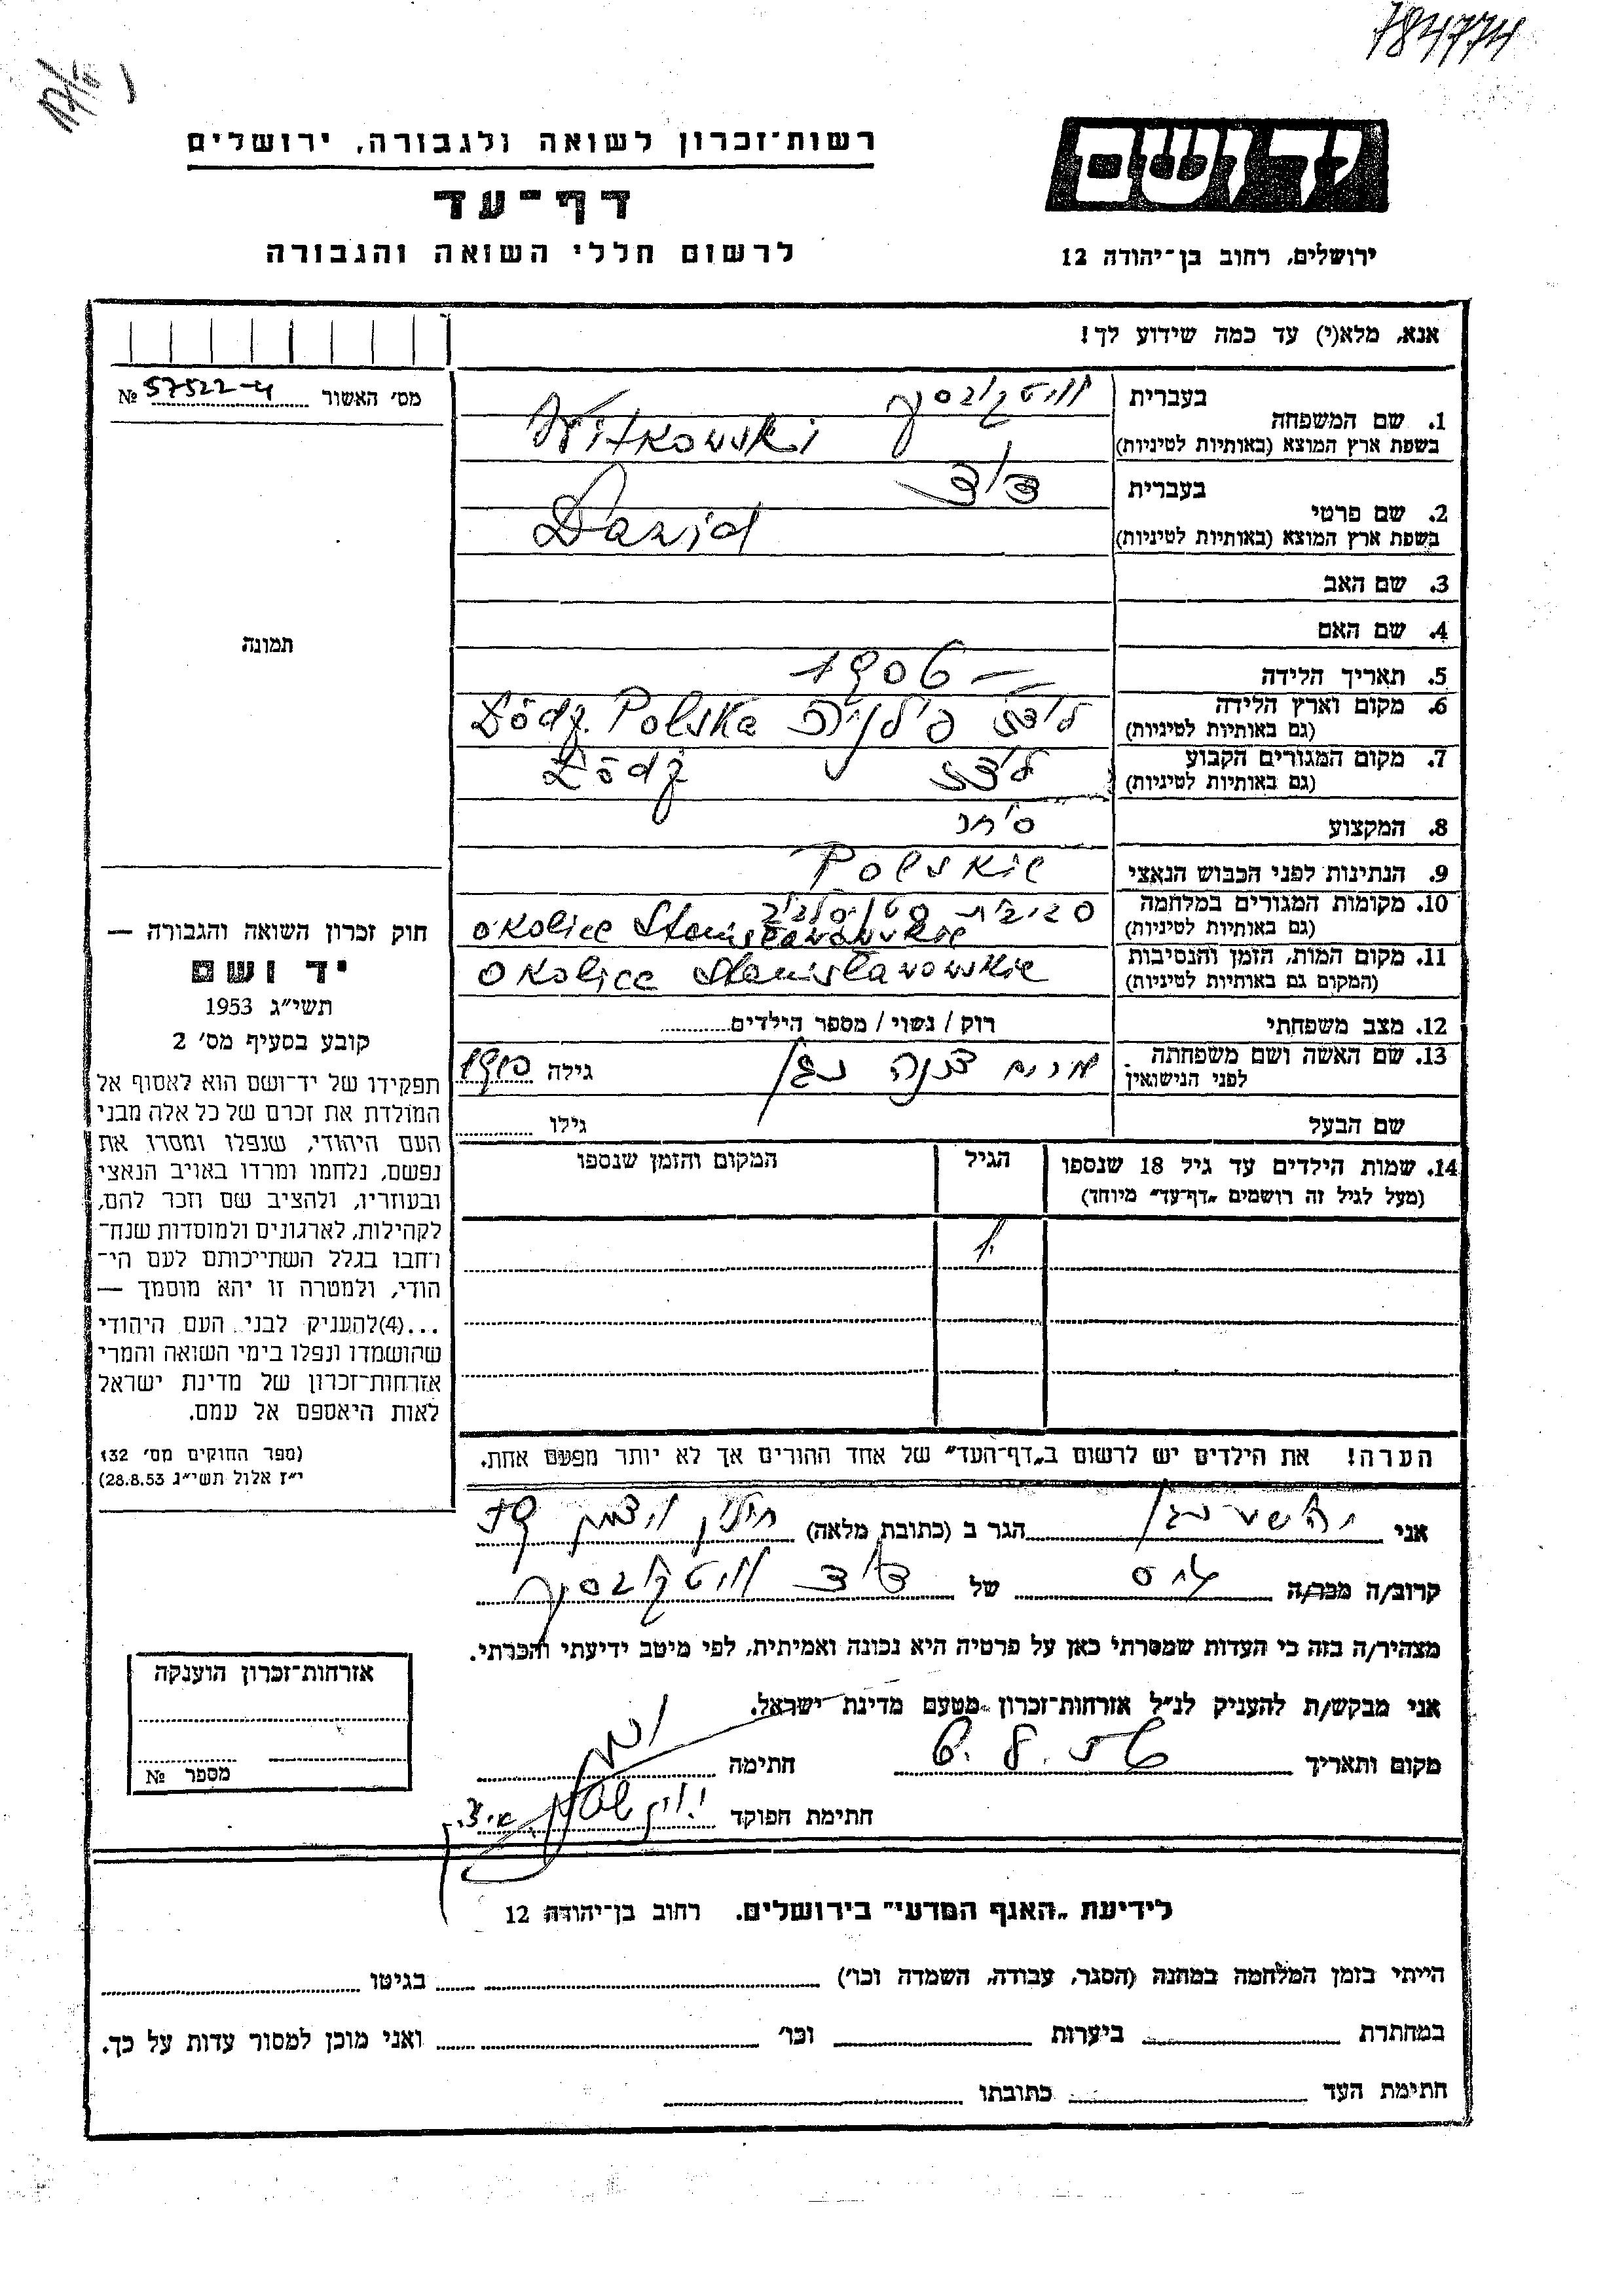 784774
רשות־זכרון לשואה ולגבורה, ירושלים
דף־עד
לרשום חללי השואה והגבורה
יד ושם
ירושלים, רחוב בן־יהודה 12
אנא, מלא(י) עד כמה שידוע לך!
מס׳ האשור № 57522-4
תמונה
1. שם המשפחה
בעברית וויטקובסקי
בשפת ארץ המוצא (באותיות לטיניות) Witkowski
2. שם פרטי
בעברית דוד
בשפת ארץ המוצא (באותיות לטיניות) Dawid
3. שם האב
4. שם האם
5. תאריך הלידה 1906 —
6. מקום וארץ הלידה לודז פולניה Łódź. Polska
(גם באותיות לטיניות)
7. מקום המגורים הקבוע לודז Łódź
(גם באותיות לטיניות)
8. המקצוע סוחר
9. הנתינות לפני הכבוש הנאצי Polskie
10. מקומות המגורים במלחמה סביבות סטניסלבוב
(גם באותיות לטיניות) okolice Stanisławowskie
11. מקום המות, הזמן והנסיבות okolice Stanisławowskie
(המקום גם באותיות לטיניות)
12. מצב משפחתי רוק / נשוי / מספר הילדים
13. שם האשה ושם משפחתה מרים גילה 1910
לפני הנישואין
שם הבעל גילו
14. שמות הילדים עד גיל 18 שנספו הגיל המקום והזמן שנספו
(מעל לגיל זה רושמים „דף־עד״ מיוחד)
1.
הערה! את הילדים יש לרשום ב„דף־העד״ של אחד ההורים אך לא יותר מפעם אחת.
חוק זכרון השואה והגבורה —
יד ושם
תשי״ג 1953
קובע בסעיף מס׳ 2
תפקידו של יד־ושם הוא לאסוף אל
המולדת את זכרם של כל אלה מבני
העם היהודי, שנפלו ומסרו את
נפשם, נלחמו ומרדו באויב הנאצי
ובעוזריו, ולהציב שם וזכר להם,
לקהילות, לארגונים ולמוסדות שנח־
רחבו בגלל השתייכותם לעם הי־
הודי, ולמטרה זו יהא מוסמך —
...(4)להעניק לבני העם היהודי
שהושמדו ונפלו בימי השואה והמרי
אזרחות־זכרון של מדינת ישראל
לאות היאספם אל עמם.
(ספר החוקים מס׳ 132
י״ז אלול תשי״ג 28.8.53)
אני הגר ב (כתובת מלאה) חולון
קרוב/ה מכר/ה גיס של דוד וויטקובסקי
מצהיר/ה בזה כי העדות שמסרתי כאן על פרטיה היא נכונה ואמיתית, לפי מיטב ידיעתי והכרתי.
אני מבקש/ת להעניק לנ״ל אזרחות־זכרון מטעם מדינת ישראל.
מקום ותאריך חתימה
חתימת הפוקד
אזרחות־זכרון הוענקה
מספר №
לידיעת „האגף המדעי״ בירושלים. רחוב בן־יהודה 12
הייתי בזמן המלחמה במחנה (הסגר, עבודה, השמדה וכו׳) בגיטו
במחתרת ביערות וכו׳ ואני מוכן למסור עדות על כך.
חתימת העד כתובתו